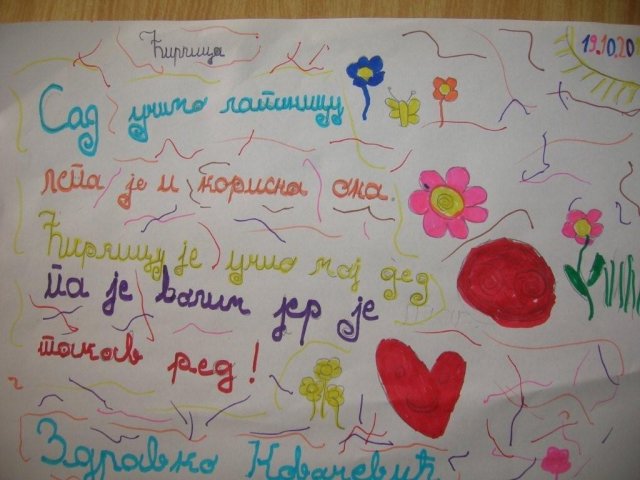 Ћирлица
19.10.20
Сад учимо латиницу
лепа је и корисна она.
Ћирлицу је учио мој дед
па је волим јер је
такав ред!
Здравко Ковачевић